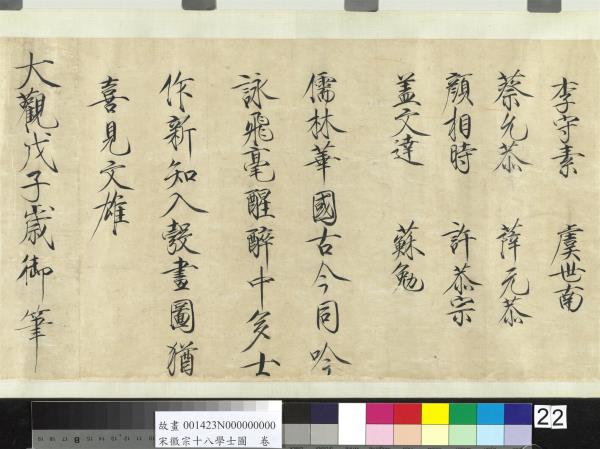 李守素 虞世南
蔡允恭 薛元恭
顔相時 許恭宗
盖文達 蘇勉
儒林華國古今同吟
詠飛毫醒醉中多士
作新知入彀畫圖猶
喜見文雄
大觀戊子歲御筆
故畫 001423N000000000
宋徽宗十八學士圖 卷
22